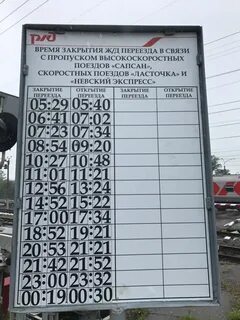 РЖД
ВРЕМЯ ЗАКРЫТИЯ Ж/Д ПЕРЕЕЗДА В СВЯЗИ
С ПРОПУСКОМ ВЫСОКОСКОРОСТНЫХ
ПОЕЗДОВ «САПСАН»,
СКОРОСТНЫХ ПОЕЗДОВ «ЛАСТОЧКА» И
«НЕВСКИЙ ЭКСПРЕСС»
ЗАКРЫТИЕ ПЕРЕЕЗДА ОТКРЫТИЕ ПЕРЕЕЗДА ЗАКРЫТИЕ ПЕРЕЕЗДА ОТКРЫТИЕ ПЕРЕЕЗДА
05:29 05:40
06:41 07:02
07:23 07:34
08:54 09:20
10:27 10:48
11:01 11:21
12:56 13:24
14:52 15:22
17:00 17:34
18:52 19:21
20:53 21:21
21:42 21:52
23:00 23:32
00:19 00:30